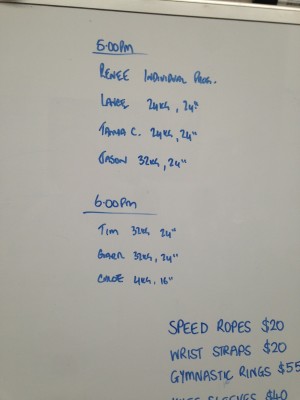 5:00PM
RENEE INDIVIDUAL PROG.
24KG, 24"
TANIA C. 24KG, 24"
JASON 32KG, 24"
6:00PM
TIM 32KG 24"
32KG, 24"
4KG, 16"
SPEED ROPES $20
WRIST STRAPS $20
GYMNASTIC RINGS $55
SLEEVES $40